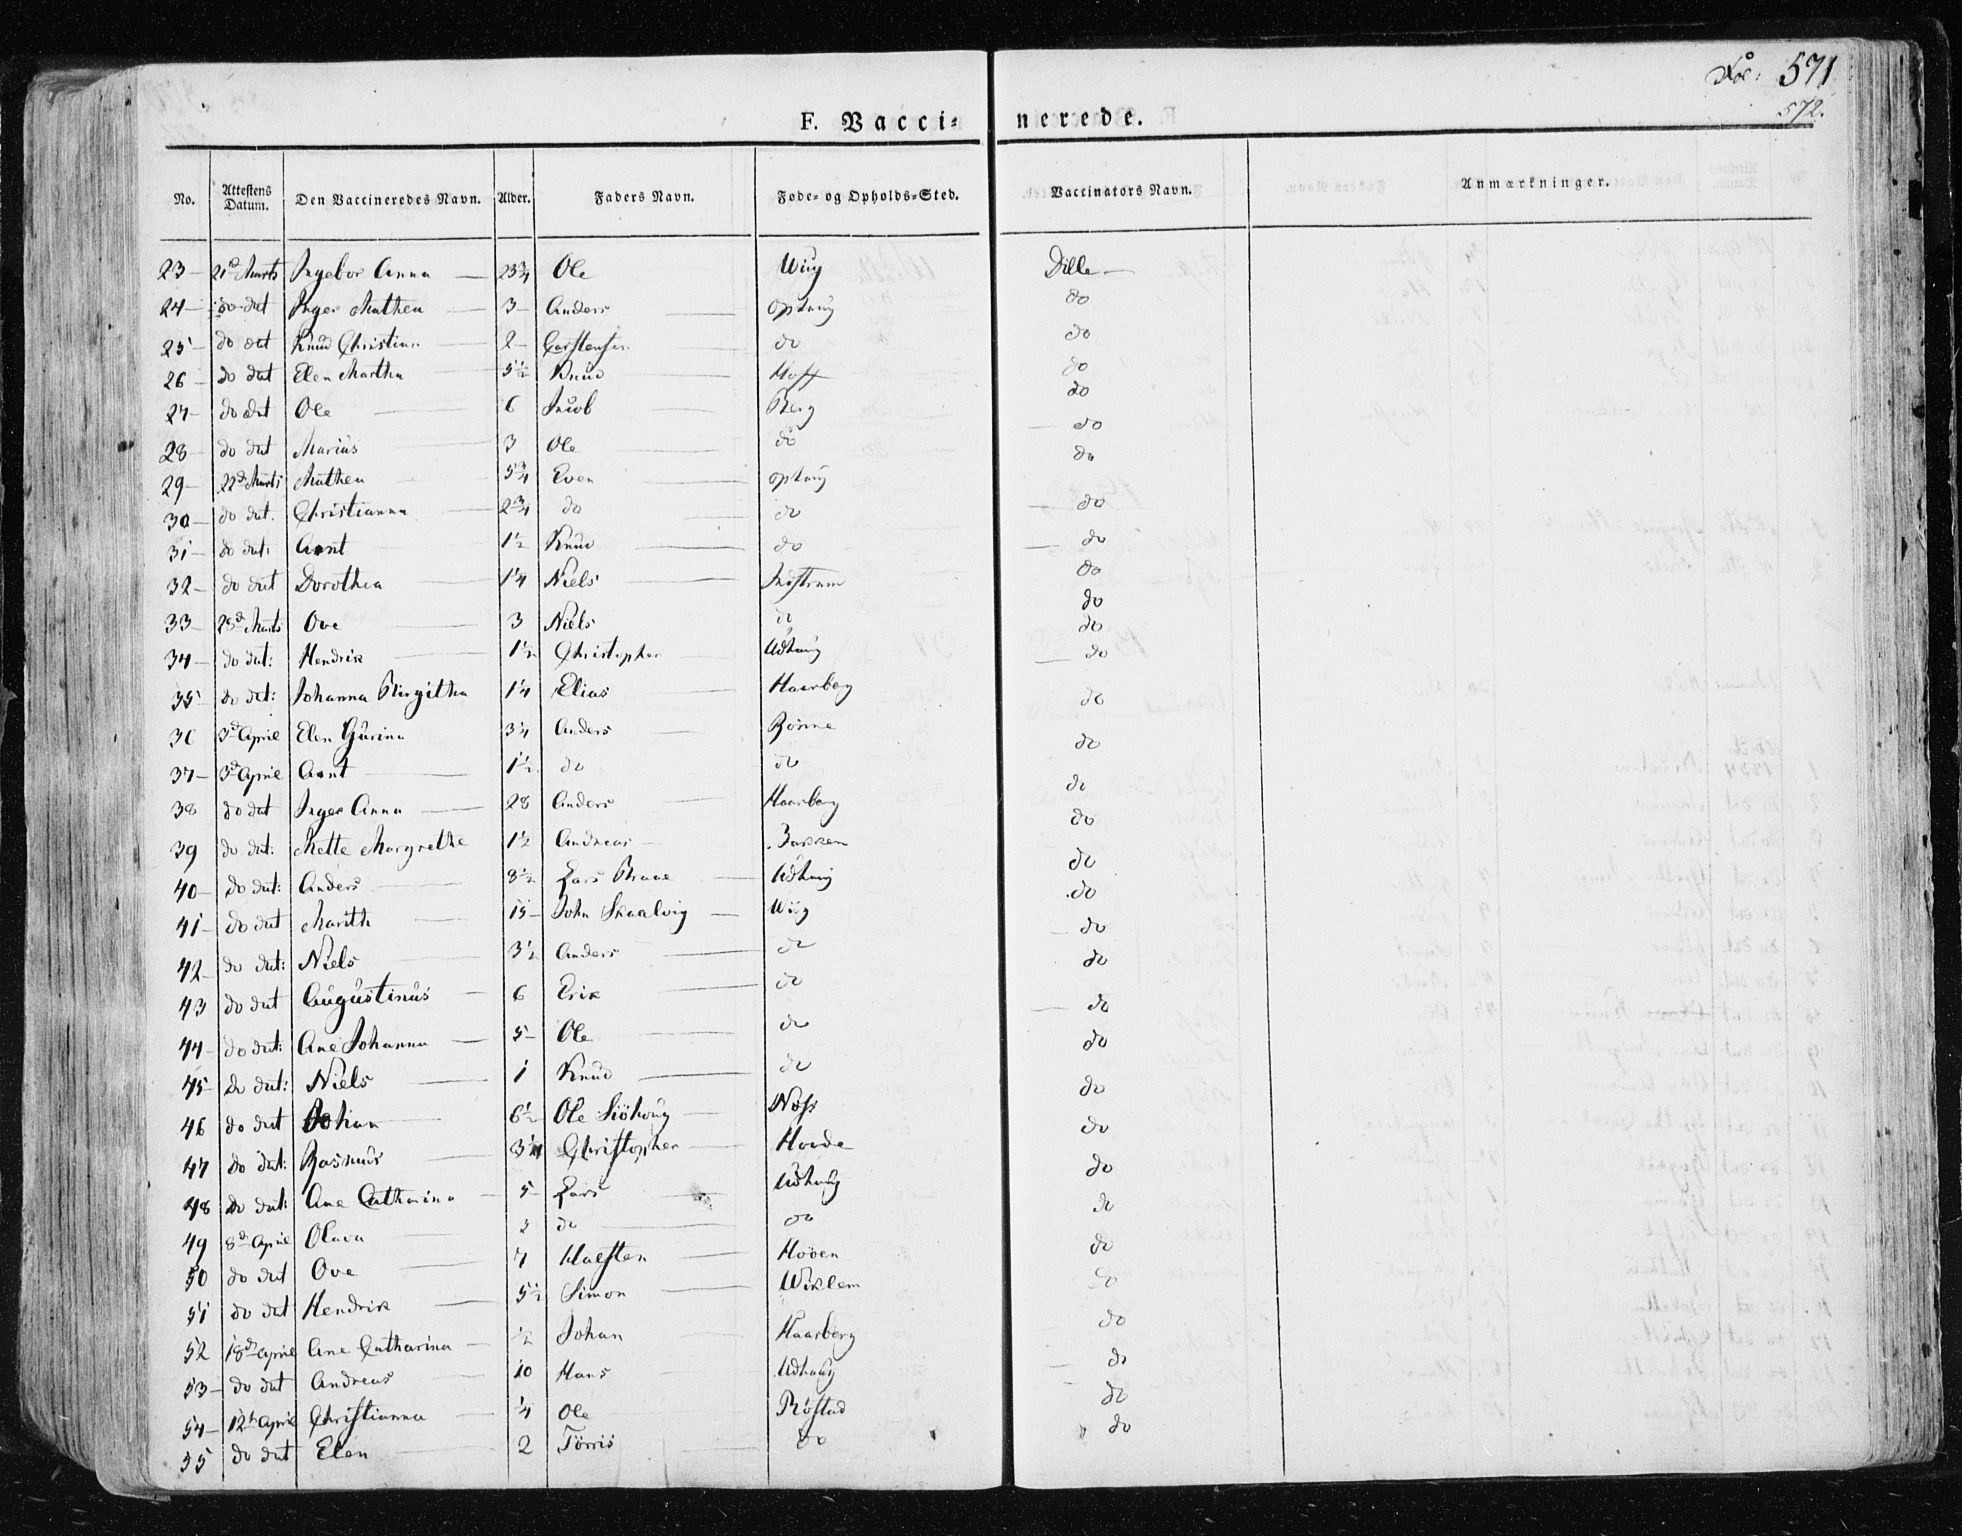 Fol: 571
572.
F. Vacci= nerede.
No. Attestens Datum. Den Vaccineredes Navn. Alder. Faders Navn. Føde= og Opholds=Sted. Vaccinators Navn. Anmærkninger.
23 – 21d Marts Ingebor Anna 23¾ Ole Wiig Dille
24 – do dat Inger Mathea 3 – Anders Ophaug do
25 – do dat Knud Christian 2 – Carstensen do do
26 – do dat Elen Martha 5½ Knud Hoff do
27 – do dat Ole 6 Jacob Berg do
28 – do dat Marius 3 Ole do do
29 – 22d Marts Mathea 5¾ Even Ophaug do
30 – do dat. Christianna 2¾ do do do
31 – do dat: Arnt 1½ Knud do do
32 – do dat Dorothea 1¼ Niels do
33 – 28d Marts Ove 3 Niels do do
34 – do dat: Hendrik 1½ Christopher Udhaug do
35 – do dat: Johanna Birgitha 1¼ Elias Haarberg do
36 3d April Elen Gurina 3¼ Anders do
37 – 3d April Arnt 1½ do do do
38 do dat Inger Anna 28 Anders Haarberg do
39 do dat: Mette Margrethe 1½ Andreas Bakken do
40 – do dat: Anders 8½ Lars Udhaug do
41 – do dat Marith 15 – John Skaalvig Wiig do
42 – do dat: Niels 3½ Anders do do
43 do dat Augustinus 6 Erik do do
44 – do dat: Ane Johanna 5 – Ole do do
45 – do dat: Niels 1 Knud do do
46 do dat Johan 6½ Ole Siöhoug Næss do
47 do dat: Rasmus 3¼ Christopher Hovde do
48 do dat: Ane Catharina 5 – Lars Udhaug do
49 8d April Olava 2 do do do
50 do dat Ove 7 Halsten Hoöen do
51 do dat Hendrik 5½ Simon Wiklem do
52 18d April Ane Catharina ½ Johan Haarberg do
53 – do dat Andreas 10 Hans Udhaug do
54 – 12t April Christianna ¼ Ole Röstad do
55 do dat Elen 2 Törris do do